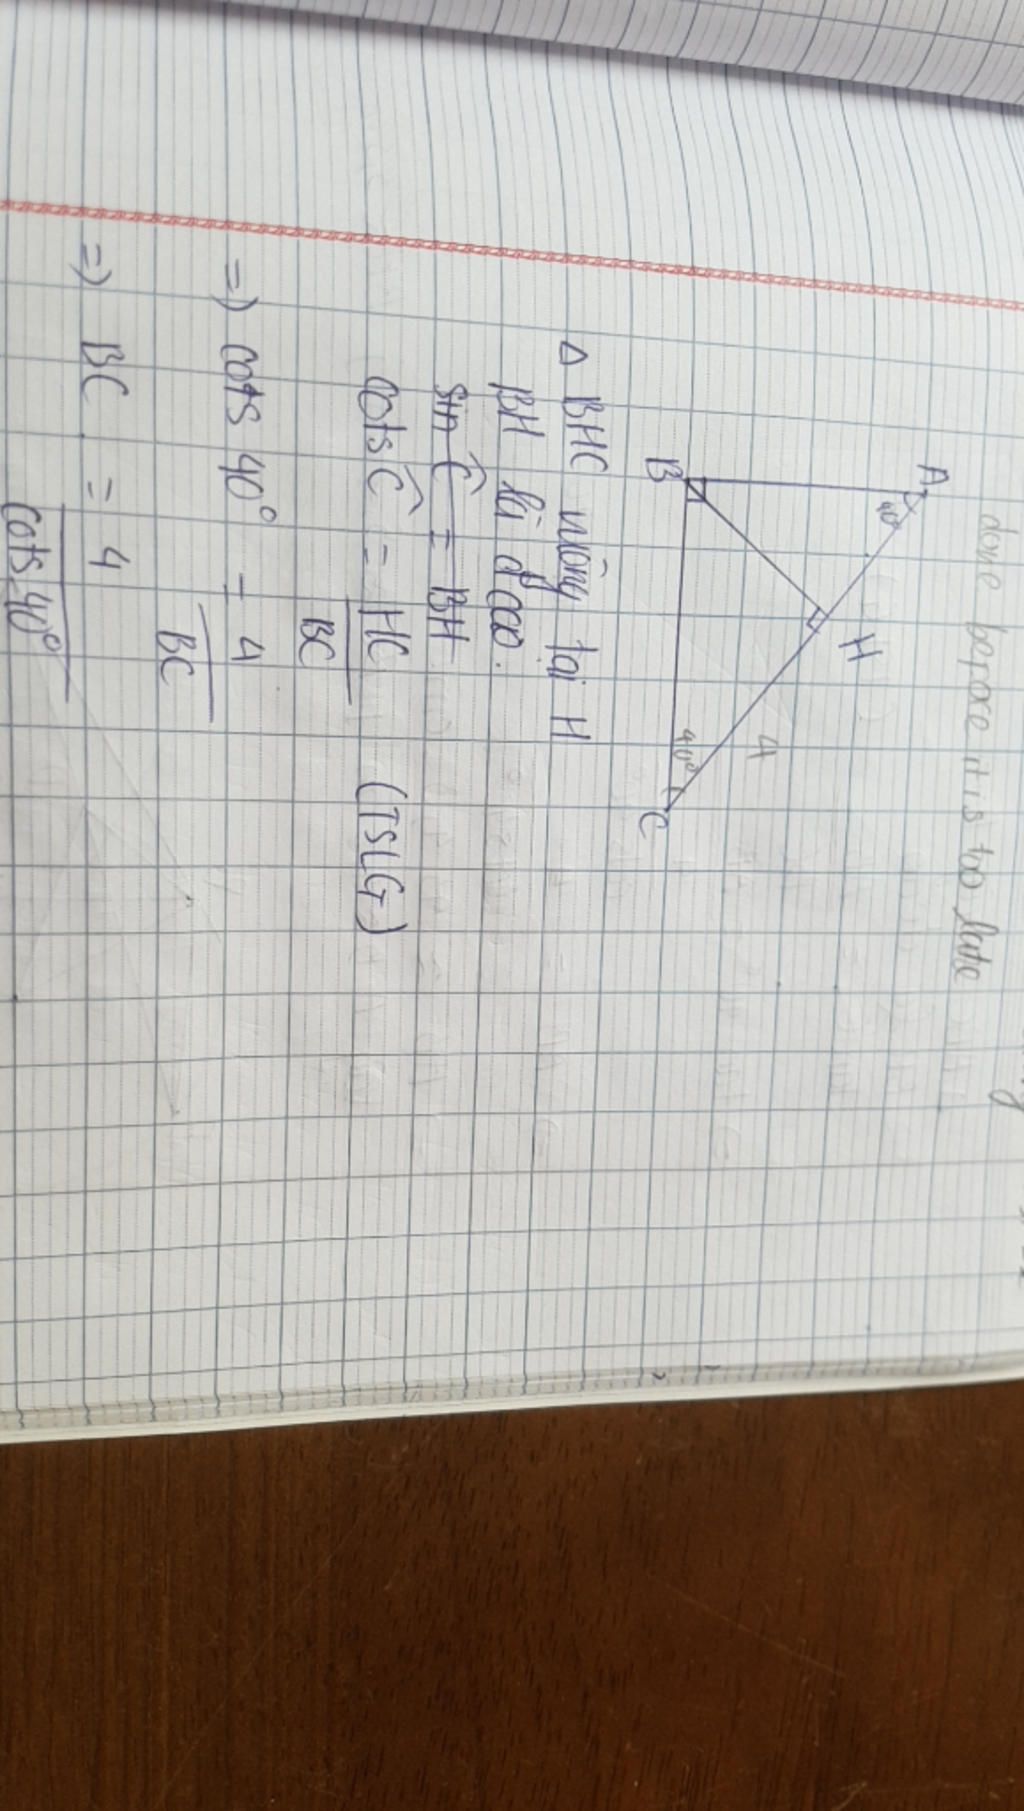 done before it is too late
A
40°
H
B
4
40°
C
Δ BHC vuông tại H
BH là đ cao.
sin Ĉ = BH
cots Ĉ = HC (TSLG)
BC
=) cots 40° = 4
BC
=) BC = 4
cots 40°